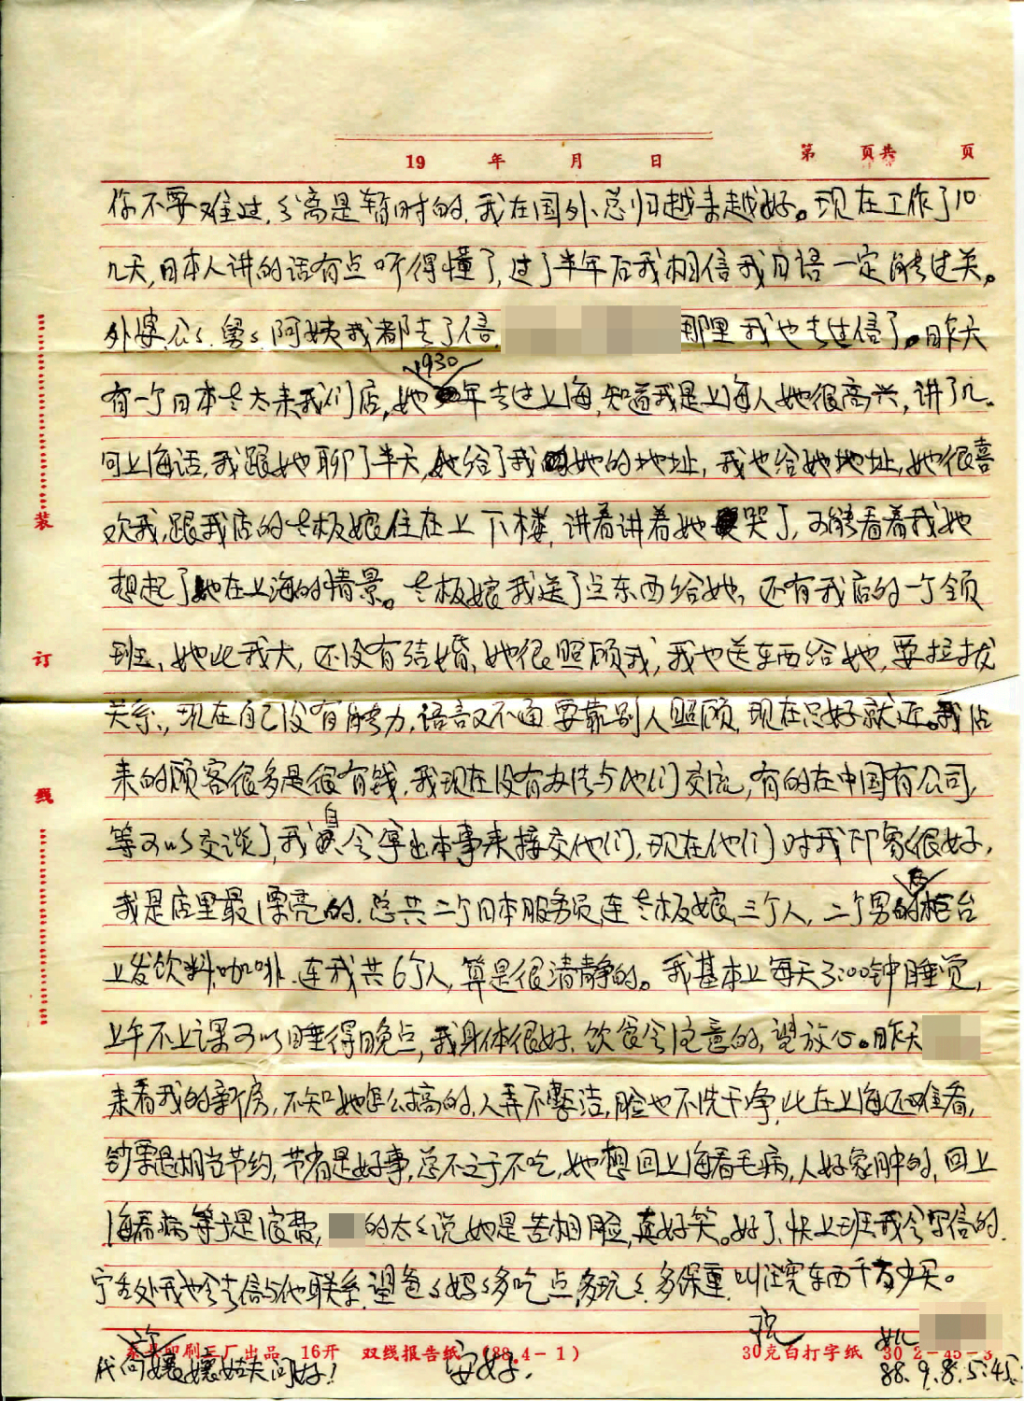 19 年 月 日 第 页共 页
你不要难过,分离是暂时的,我在国外总归越来越好。现在工作了10
几天,日本人讲的话有点听得懂了,过了半年后我相信我日语一定能过关。
外婆、公公、舅舅、阿姨我都去了信, 那里我也去过信了。昨天
1930
有一个日本老太来我们店,她年去过上海,知道我是上海人她很高兴,讲了几
句上海话,我跟她聊了半天,她给了我她的地址,我也给她地址,她很喜
欢我,跟我店的老板娘住在上下楼,讲着讲着她哭了,可能看着我她
想起了她在上海的情景。老板娘我送了点东西给她,还有我店的一个领
班,她比我大,还没有结婚,她很照顾我,我也送东西给她,要拉拢
关系,现在自己没有能力,语言又不通要靠别人照顾,现在只好就近。我店
来的顾客很多是很有钱,我现在没有办法与他们交流,有的在中国有公司,
等可以交谈了,我自会拿出本事来接交他们,现在他们对我印象很好,
我是店里最漂亮的,总共二个日本服务员,连老板娘三个人,二个男的在柜台
上发饮料、咖啡,连我共6个人,算是很清静的。我基本上每天3:00钟睡觉,
上午不上课可以睡得晚点,我身体很好,饮食会注意的,望放心。昨天
来看我的新房,不知她怎么搞的,人弄不整洁,脸也不洗干净,比在上海还难看,
钞票是相当节约,节省是好事,总不至于不吃,她想回上海看毛病,人好象肿的,回上
海看病等于是浪费, 的太太说她是苦相脸,真好笑。好了,快上班,我会写信的.
宁处我也会去信与他联系,望爸爸妈妈多吃点,多玩玩,多保重,叫汪完东西千万少买。
祝
印刷三厂出品 16开 双线报告纸 (88.4-1) 30克白打字纸 30 2-45-3
代问嬢嬢姑夫问好! 安好. 88.9.8.5:45
装
订
线